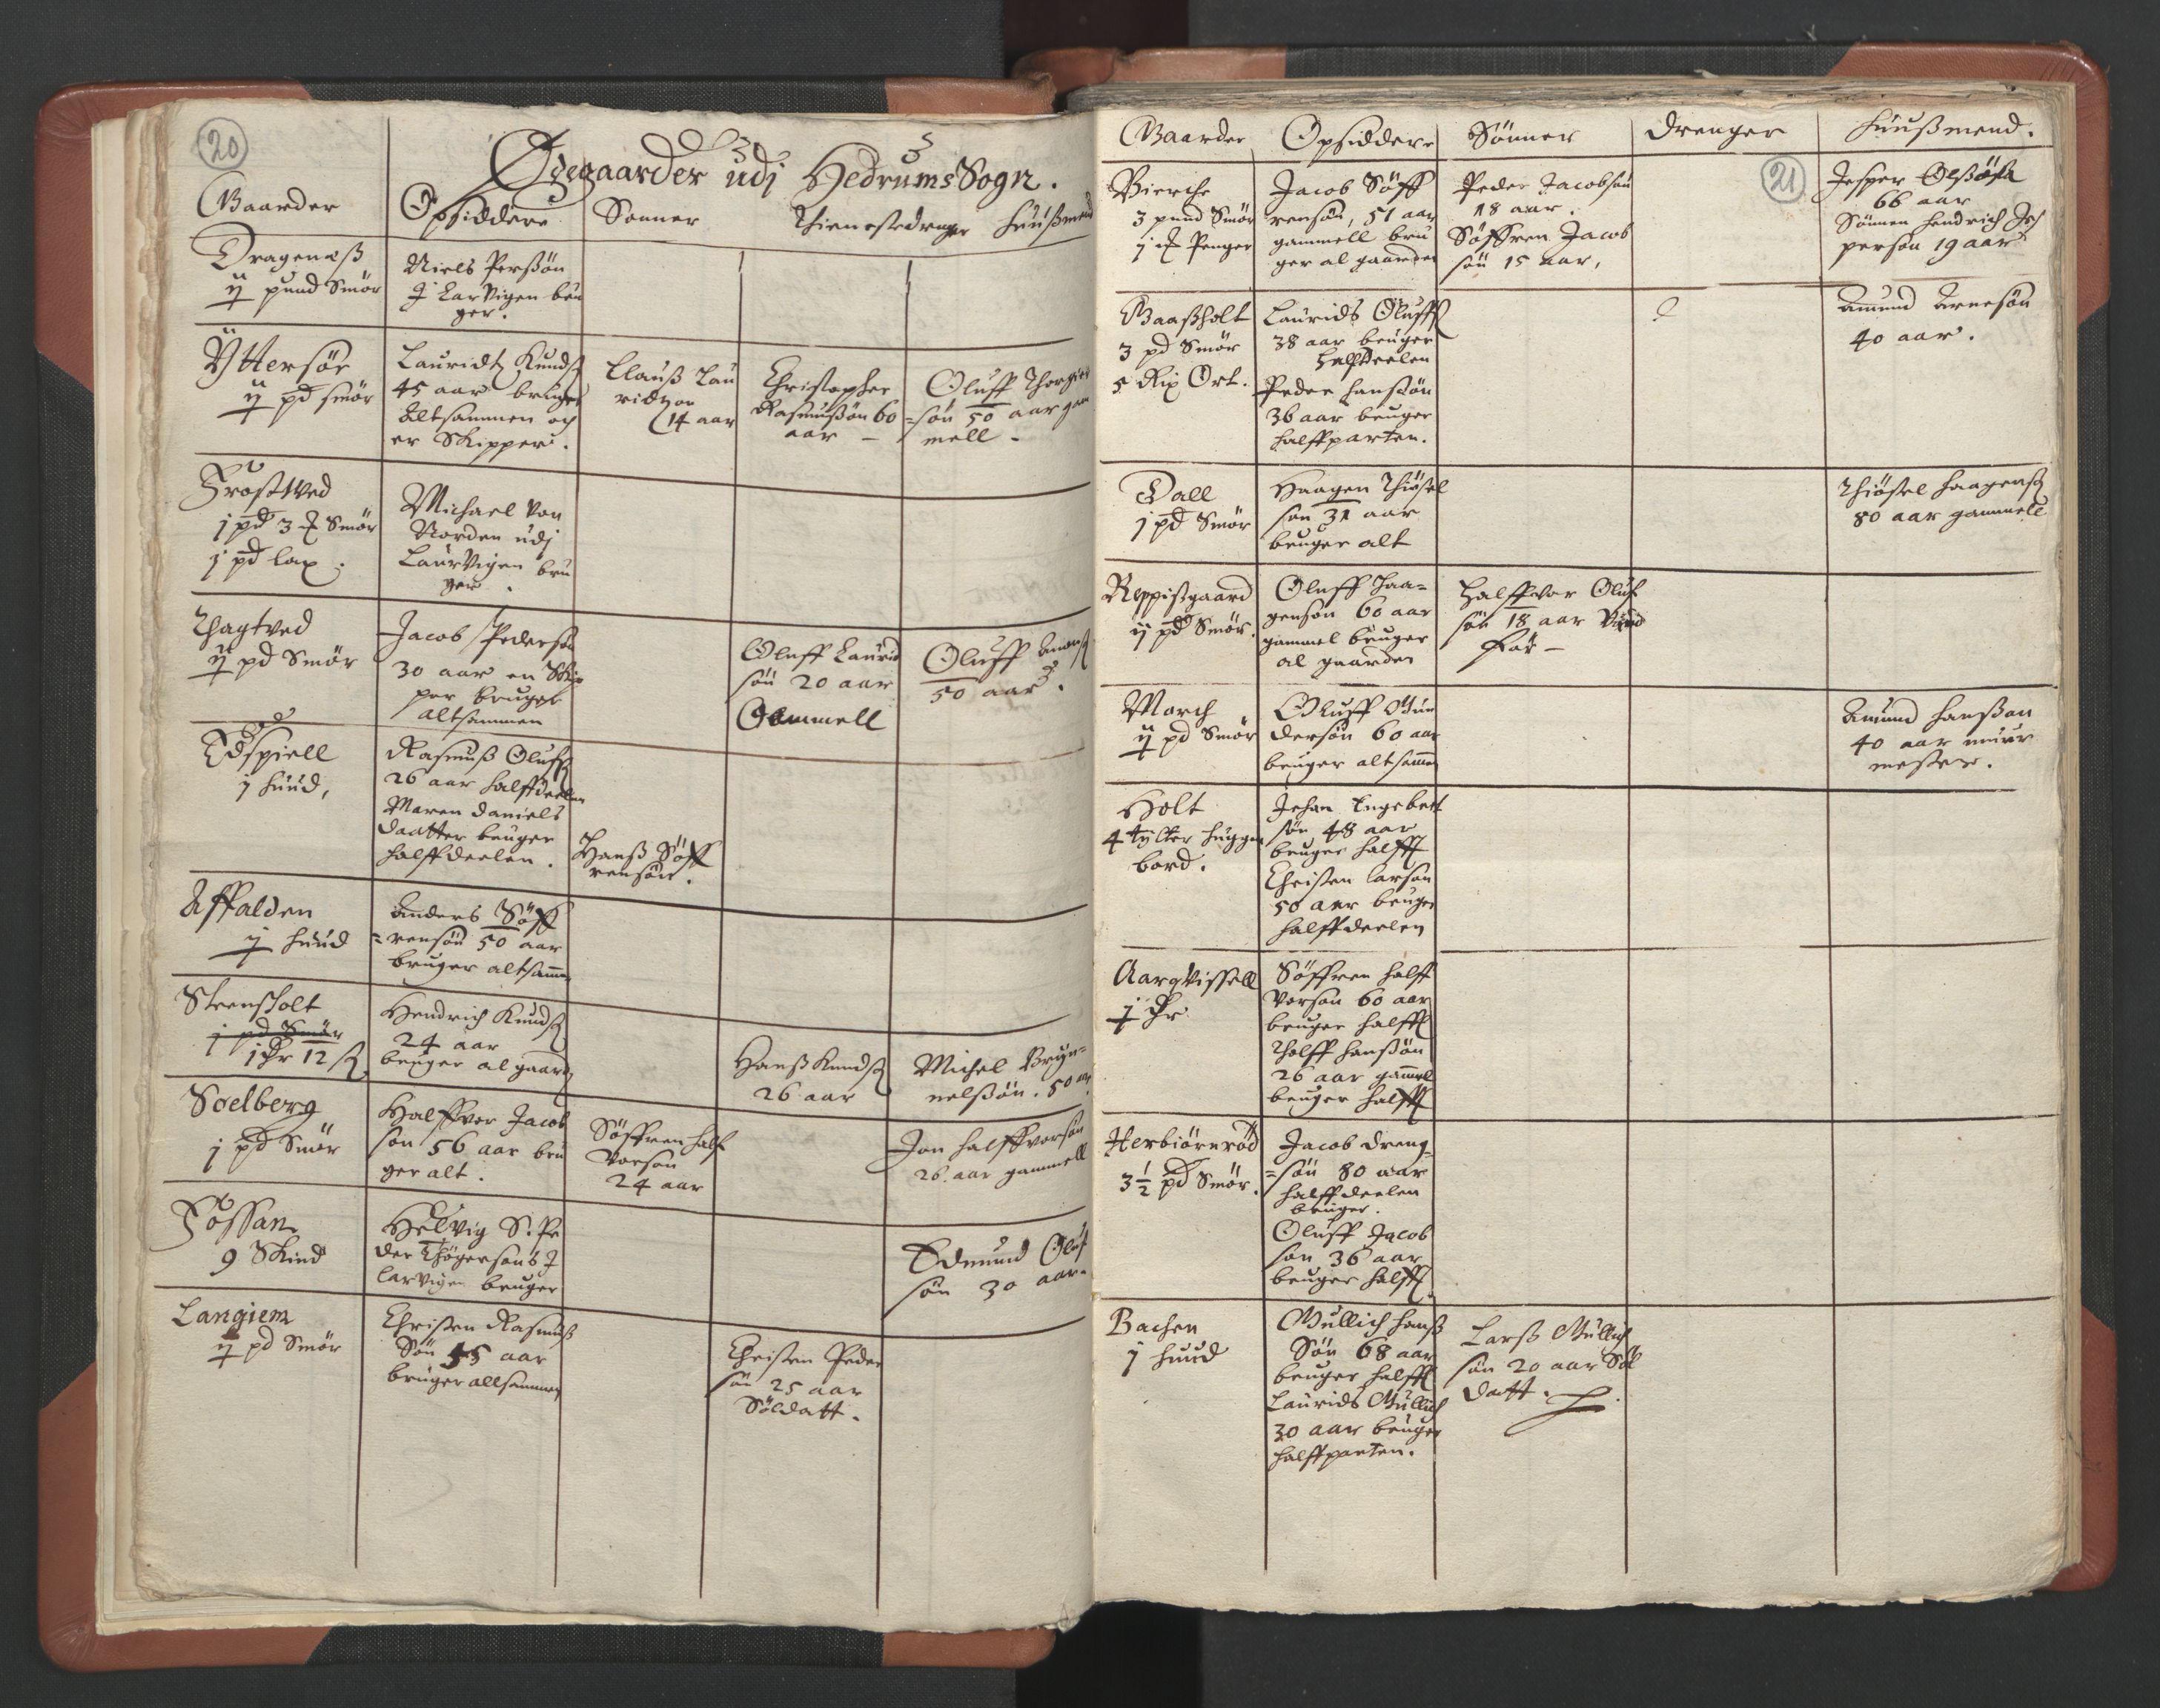 20
Ødegaarder udj Hedrums Sogn.
Gaarder
Opsiddere
Sønner
Thienestedrenger
Huußmend
Dragenæß
ij pund Smør
Niels Perßøn
J Larvigen bru
ger.
Yttersøe
ij pd smør
Lauridtz Knudß
45 aar bruger
Altsammen och
er Skipper.
Clauß Lau
ridtzon
14 aar
Christopher
Rasmußøn 60
aar –
Oluff Thorgies
=søn 50 aar gam
mell –
Frøstved
j pd 3 # Smør
j pd lax.
Michael Von
Norden udj
LaurVigen bru
ger.
Thagtved
ij pd Smør
Jacob Pedersøn
30 aar en Skip
per bruger
altsammen
Oluff Laurid
søn 20 aar
Gammell
Oluff
50 aar.
Edspiell
j huud,
Rasmuß Olufß
26 aar halffdeelen
Maren Daniels
daatter bruger
halffdeelen.
Hanß Søff
rensøn.
Affalden
ij huud
Anders Søff
=rensøn 50 aar
bruger altsamen
Steensholt
j pd Smør
12 ß
Hendrich Knudß
24 aar
bruger al gaard
Hanß Knudß
26 aar
Michel Bryn=
nelßøn. 50 aar
Soelberg
j pd Smør
Halffvor Jacob
søn 56 aar bru
ger alt.
Søffren half
vorsøn
24 aar
Jon Halffvorsøn
26 aar gammell
Fossan
9 Skind
Helvig S. Pe
der Thøgersøns J
larvigen bruger
Edmund Oluf
søn 30 aar.
Langiem
ij pd Smør
Christen Rasmuß
Søn 45 aar
bruger allsammen
Christen Peder
søn 25 aar
Soldatt.
21
Gaarder
Opsiddere
Sønner
Drenger
Huußmend.
Bierche
3 pund Smør
j # Penger
Jacob Søff
rensøn, 51 aar
gammell bru
ger al gaarden
Peder Jacobsøn
18 aar.
Søffren Jacob
søn 15 aar,
Jesper Olßøn
66 aar
Sønnen Hendrich Jeß
persøn 19 aar
Baaßholt
3 pd Smør
5 Rix Ort.
Laurids Oluffß
38 aar bruger
halffdeelen
Peder Hanßøn
36 aar bruger
halffparten.
Amund Arnesøn
40 aar.
Dall
j pd Smør
Haagen Thiøstel
søn 31 aar
bruger alt
Thiøstel Haagenß
80 aar gammell
Reppißgaard
ij pd Smør.
Oluff Haa=
gensøn 60 aar
gammel bruger
al gaarden
Halffvor Oluf
søn 18 aar Vand
før –
March
ij pd Smør
Oluff Gun
dersøn 60 aar
bruger altsamen
Amund Hanßøn
40 aar muur
mester.
Holt
4 tylter huggen
bord.
Johan Engebret
søn 48 aar
bruger halff
Christen Larsøn
50 aar bruger
halffdeelen
Aarqvissell
Søffren Half
Vorsøn 60 aar
bruger halff
Tholff Hanßøn
26 aar gamel
bruger halff
Herbiørnrød
3½ pd Smør.
Jacob dreng=
=søn 80 aar
halffdeelen
bruger.
Oluff Jacob
søn 36 aar
bruger halff
Bachen
j huud
Gullich Hanß
Søn 68 aar
bruger halff
Laurids Gullich
30 aar bruger
halffparten.
Larß Gullich
søn 20 aar Sol
datt.